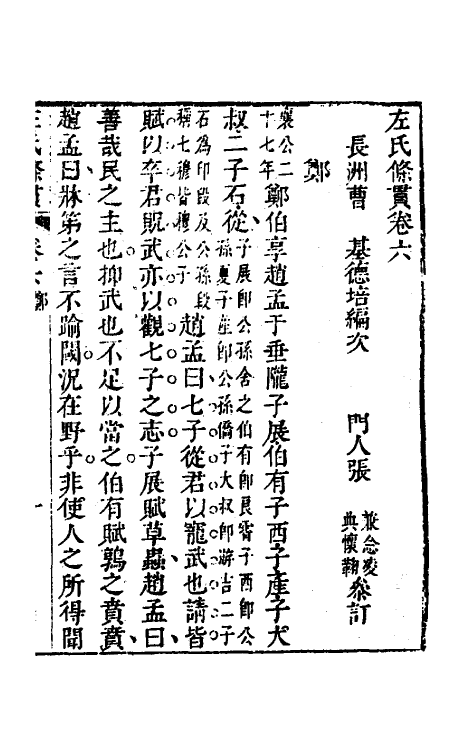 左氏條貫卷六
長洲曹 基德培編次 門人張 兼念凌 典懷鞠 叅訂
鄭
襄公二十七年鄭伯享趙孟于垂隴子展伯有子西子產子大
叔二子石從子展卽公孫舍之伯有卽良霄子西卽公孫夏子產卽公孫僑子大叔卽游吉二子
石爲印段及公孫段稱七穆皆穆公子趙孟曰七子從君以寵武也請皆
賦以卒君貺武亦以觀七子之志子展賦草蟲趙孟曰
善哉民之主也抑武也不足以當之伯有賦鶉之賁賁
趙孟曰牀笫之言不踰閾況在野乎非使人之所得聞
左氏條貫 卷六 鄭 一